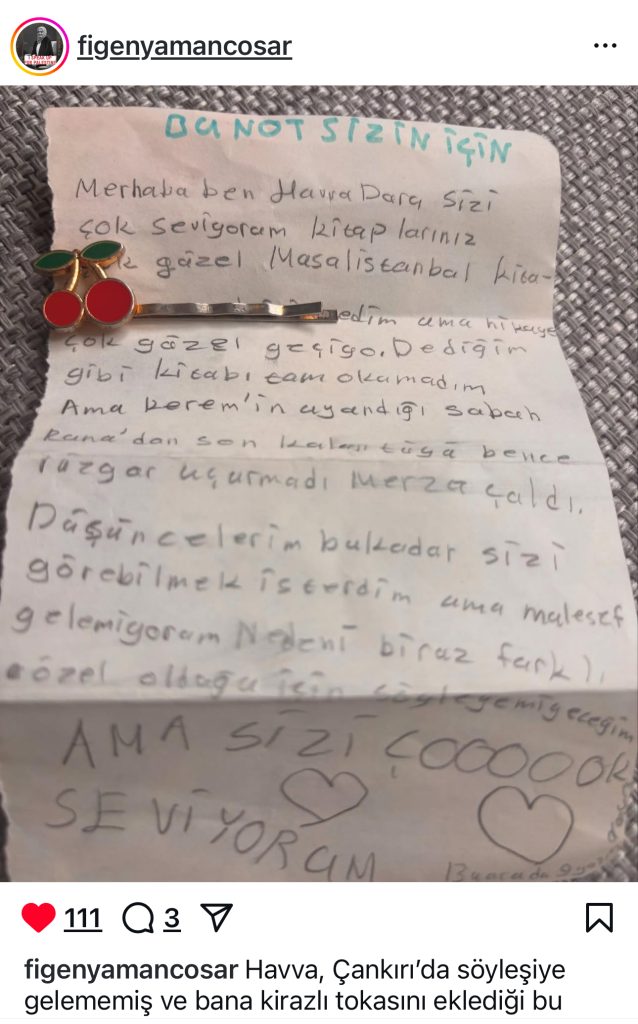 figenyamancosar
BU NOT SİZİN İÇİN
Merhaba ben Havva Darq sizi
çok seviyorum kitap larınız
güzel Masalistanbul kita-
edim ama hikaye
çok güzel geçiyo. Dediğim
gibi kitabı tam okumadım
Ama kerem'in uyandığı sabah
Rana'dan son kalan tüyü bence
rüzgar uçurmadı Merza çaldı.
Düşüncelerim bukadar sizi
görebilmek isterdim ama malesef
gelemiyorum Nedeni biraz farklı,
özel olduğu için söyleyemiyeceğim
AMA SİZİ ÇOOOOOOK
SEVİYORUM
Bu arada
111
3
figenyamancosar Havva, Çankırı’da söyleşiye
gelememiş ve bana kirazlı tokasını eklediği bu